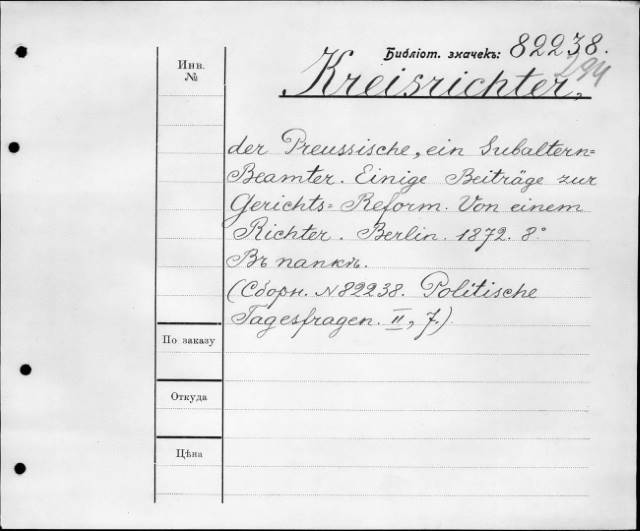 Библіот. значекъ: 82238.
294
Инв.
№
Kreisrichter,
der Preussische, ein Subaltern=
Beamter. Einige Beiträge zur
Gerichts=Reform. Von einem
Richter. Berlin. 1872. 8°
Въ папкѣ.
(Сборн. №82238. Politische
Tagesfragen. II, 7.)
По заказу
Откуда
Цѣна